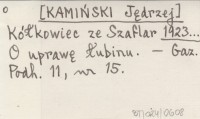 [KAMIŃSKI Jędrzej]
Kółkowiec ze Szaflar 1923...
O uprawę łubinu. – Gaz.
Podh. 11, nr 15.